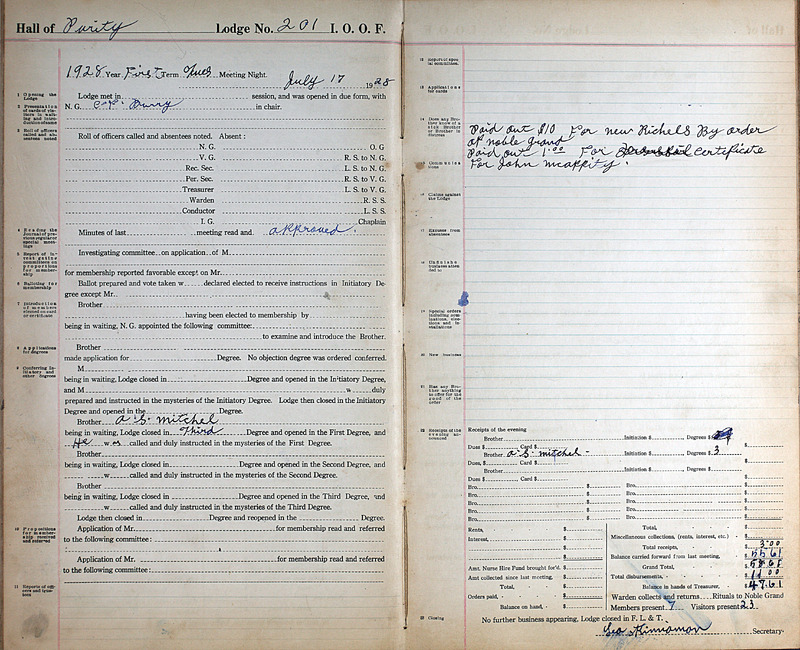 Hall of Purity Lodge No. 201 I. O. O. F.
1928 Year First Term Tues Meeting Night. July 17 1928
1 Opening the Lodge
Lodge met in session, and was opened in due form, with
N. G. in chair.
3 Roll of officers called and absentees noted
Roll of officers called and absentees noted. Absent:
N. G. O. G
V. G. R. S. to N. G.
Rec. Sec. L. S. to N. G.
Per. Sec. R. S. to V. G.
Treasurer L. S. to V. G.
Warden R. S. S.
Conductor L. S. S.
I. G. Chaplain
Minutes of last meeting read and approved.
Investigating committee on application of M
for membership reported favorable except on Mr.
6 Balloting for membership
Ballot prepared and vote taken w declared elected to receive instructions in Initiatory De-
gree except Mr.
Brother
having been elected to membership by
being in waiting, N. G. appointed the following committee:
to examine and introduce the Brother.
8 Applications for degrees
Brother
made application for Degree. No objection degree was ordered conferred.
M
being in waiting, Lodge closed in Degree and opened in the Initiatory Degree,
and M w duly
prepared and instructed in the mysteries of the Initiatory Degree. Lodge then closed in the Initiatory
Degree and opened in the Degree.
Brother A. S. Mitchel
being in waiting, Lodge closed in Third Degree and opened in the First Degree, and
He was called and duly instructed in the mysteries of the First Degree.
Brother
being in waiting, Lodge closed in Degree and opened in the Second Degree, and
w called and duly instructed in the mysteries of the Second Degree.
Brother
being in waiting, Lodge closed in Degree and opened in the Third Degree, and
w called and duly instructed in the mysteries of the Third Degree.
Lodge then closed in Degree and reopened in the Degree.
10 Propositions for membership received and referred
Application of Mr. for membership read and referred
to the following committee:
Application of Mr. for membership read and referred
to the following committee:
12 Report of special committees.
13 Applications for cards
Paid out $10 For new Richels By order
of noble grand
Paid out 1.00 For certificate
For John
16 Claims against the Lodge
17 Excuses from absentees
18 Unfinished business attended to
20 New business
21 Has any Brother anything to offer for the good of the order
22 Receipts of the evening announced
Receipts of the evening
Brother Initiation $ Degrees $
Dues $ Card $ $
Brother A S Mitchel - Initiation $ Degrees $ 3
Dues, $ Card $ $
Brother Initiation $ Degrees $
Dues $ Card $ $
Bro. $ Bro. $
Bro. $ Bro. $
Bro. $ Bro. $
Bro. $ Bro. $
Bro. $ Bro. $
Rents, $ Total, $
Interest, $ Miscellaneous collections, (rents, interest, etc.) $
Total receipts, $ 3.00
$ Balance carried forward from last meeting, $ 55 61
Amt. Nurse Hire Fund brought for'd. $ Grand Total, $ 58 61
Amt collected since last meeting, $ Total disbursements, $ 11 00
Total, $ Balance in hands of Treasurer, $ 47.61
Orders paid, $ Warden collects and returns Rituals to Noble Grand
Balance on hand, $ Members present 7 Visitors present 23
23 Closing
No further business appearing, Lodge closed in F. L. & T.
Geo Kinnamon Secretary